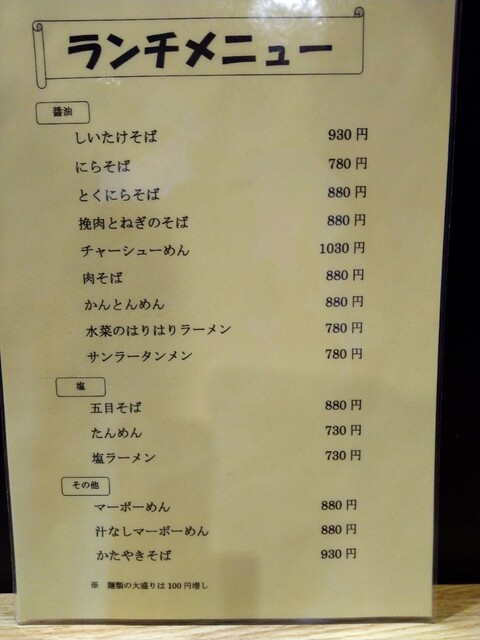 ランチメニュー
醤油
しいたけそば 930円
にらそば 780円
とくにらそば 880円
挽肉とねぎのそば 880円
チャーシューめん 1030円
肉そば 880円
かんとんめん 880円
水菜のはりはりラーメン 780円
サンラータンメン 780円
塩
五目そば 880円
たんめん 730円
塩ラーメン 730円
その他
マーボーめん 880円
汁なしマーボーめん 880円
かたやきそば 930円
※ 麺類の大盛りは100円増し